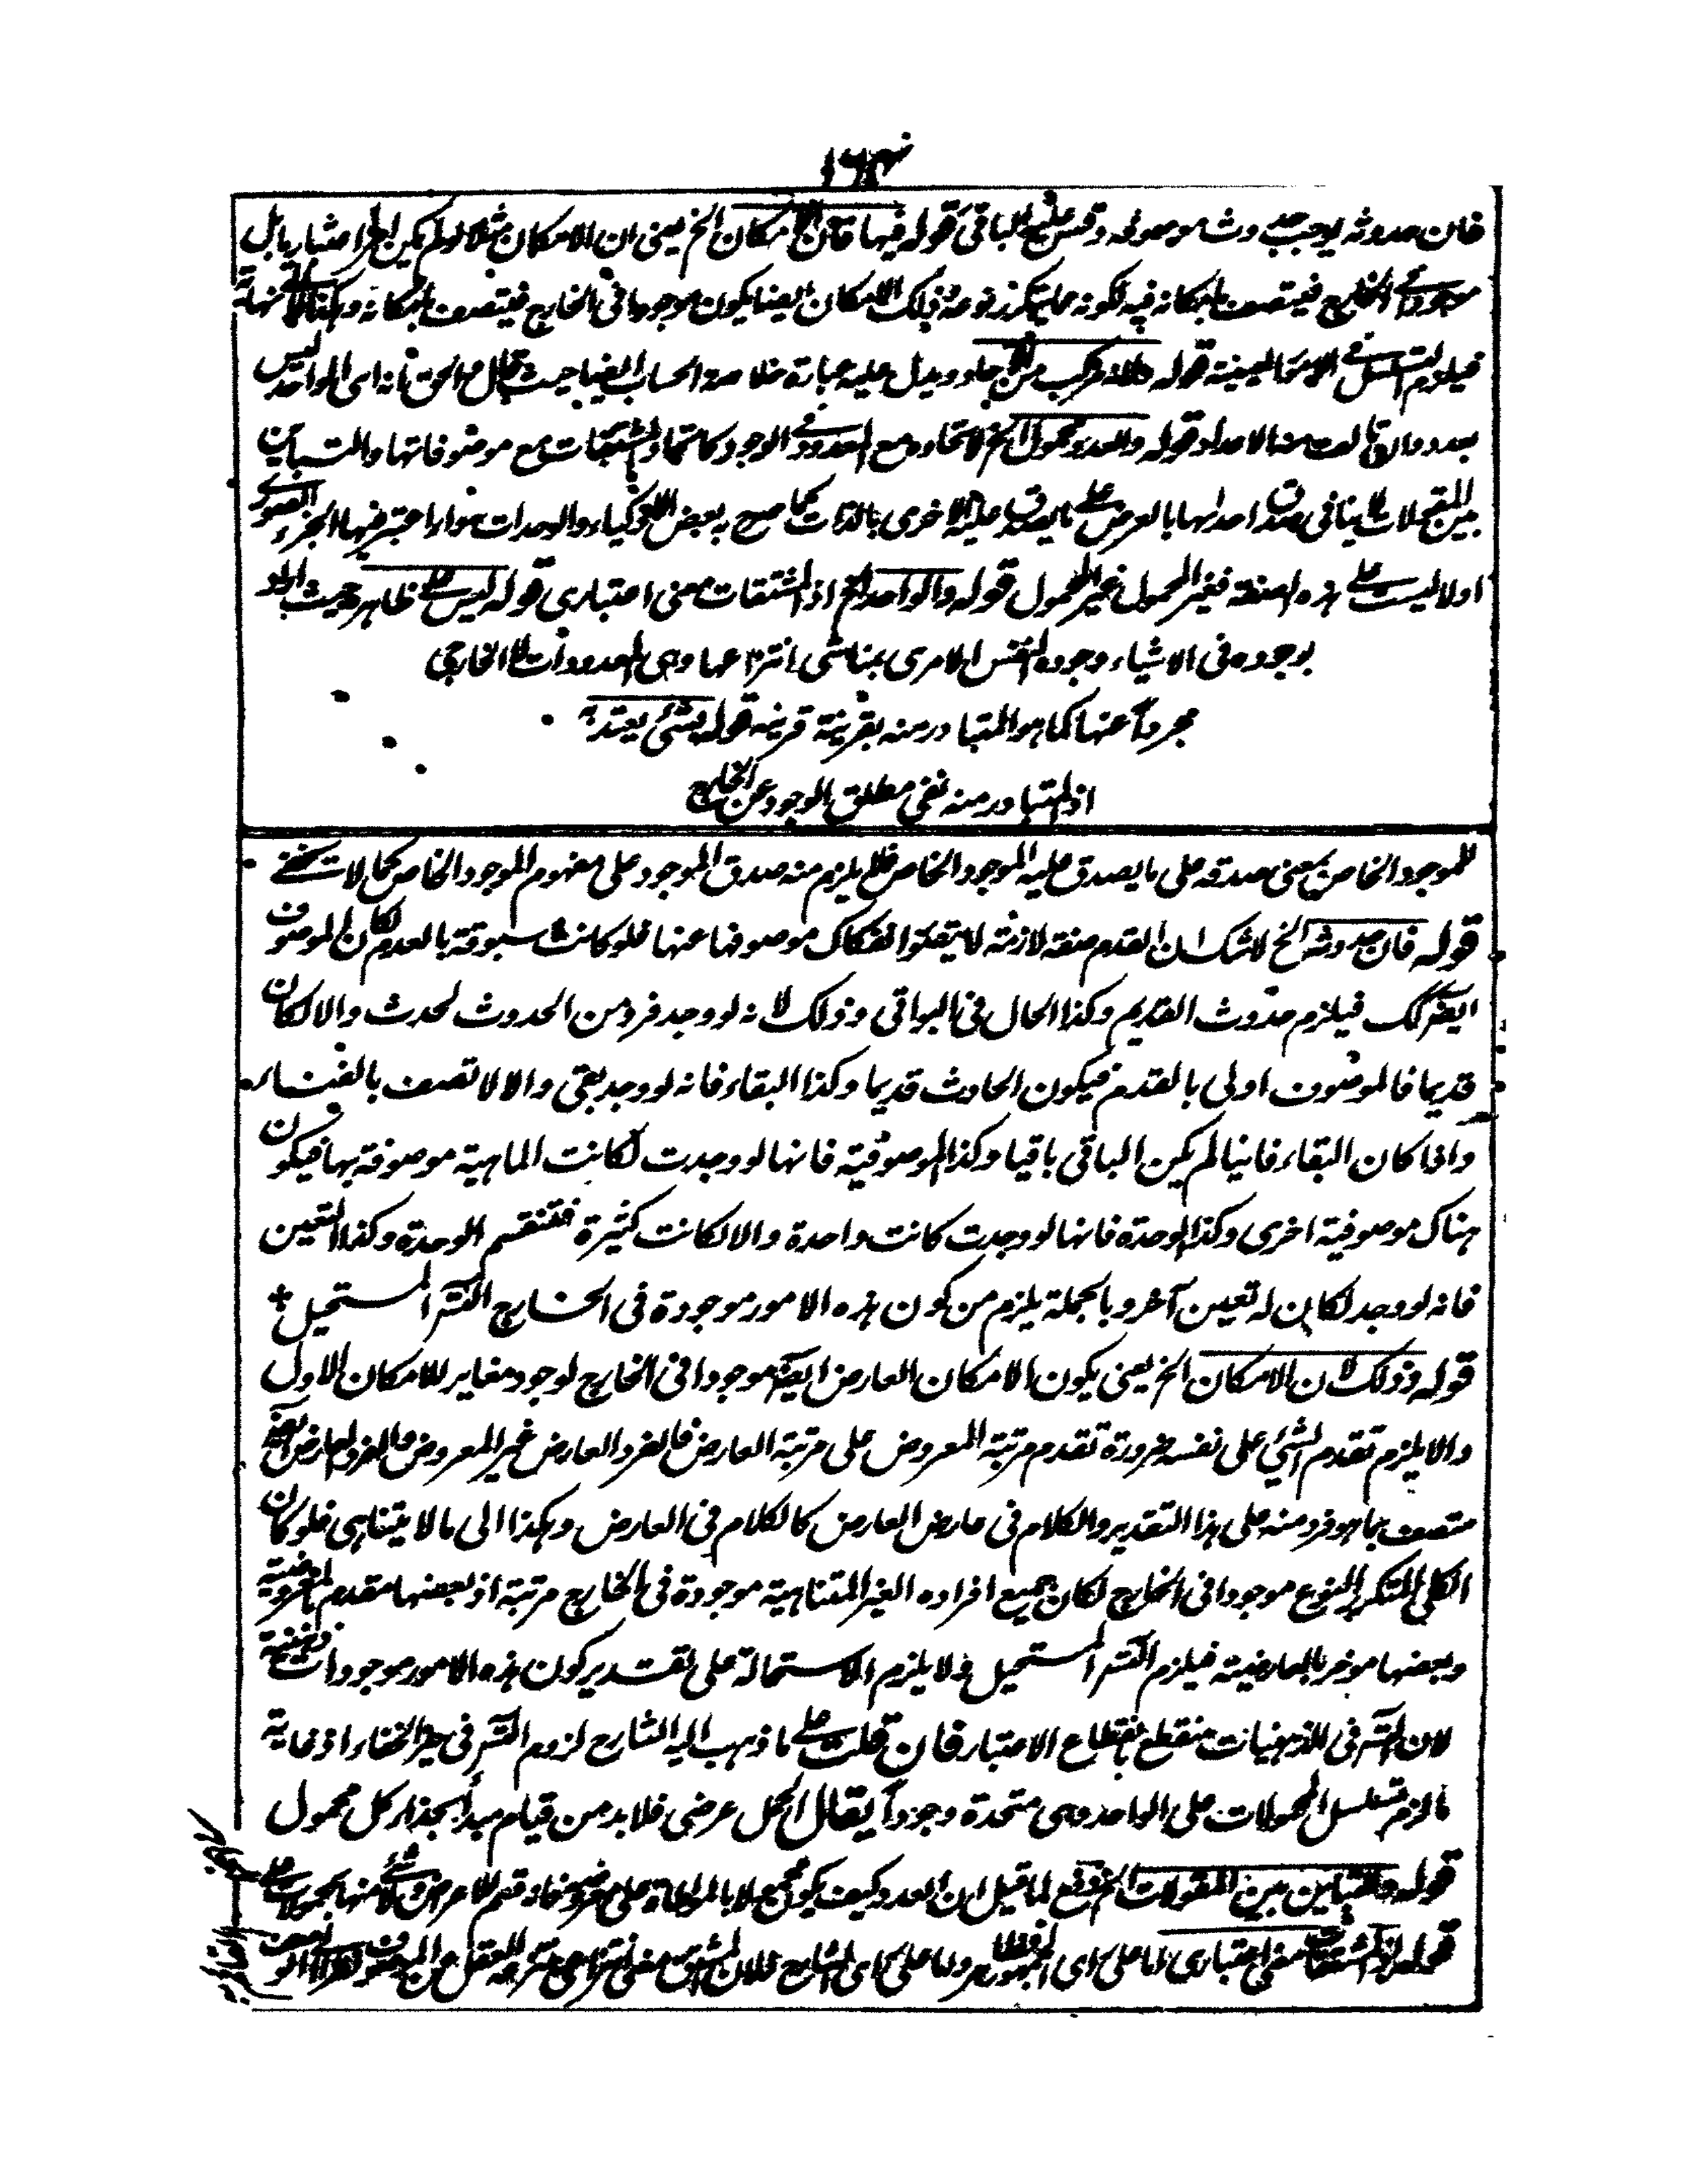 فان حدوثه يوجب حدوث موصوفه وقس عليه البواقى قوله فيها فان الامكان الخ يعنى ان الامكان مثلا لو لم يكن امرا اعتباريا بل
موجودا فى الخارج فيتصف بامكانه فيه لكونه مما يتكرر نوعه فذلك الامكان ايضا يكون موجودا فى الخارج فيتصف بامكانه وهكذا الى لا نهاية
فيلزم التسلسل فى الامور العينية قوله مركب من آحاد ويدل عليه عبارة خلاصة الحساب ايضا حيث قال والحق انه اى الواحد ليس
بعدد وان تالفت منه الاعداد قوله والعدد محمول الخ لاتحاده مع المعدود فى الوجود كاتحاد المشتقات مع موصوفاتها والتباين
بين المقولات لا ينافى صدق احداها بالعرض على ما يصدق عليه الاخرى بالذات كما صرح به بعض الاذكياء والوحدات سواء اعتبر فيها الجزء الصورى
اولا ليست على هذه الصفة فغير المحمول غير المحمول قوله والواحد الخ اذ المشتقات معنى اعتبارى قوله ليس على ظاهره حيث اراد
بوجوده فى الاشياء وجوده النفس الامرى بمناشى انتزاعها وهى المعدودات لا الخارجى
مجردا عنها كما هو المتبادر منه بقرينة قرينه قوله بشئ يعتد به
اذ المتبادر منه نفى مطلق الوجود عن الخارج
للموجود الخاص بمعنى صدقه على ما يصدق عليه الموجود الخاص فلا يلزم منه صدق الموجود على مفهوم الموجود الخاص كما لا يخفى
قوله فان حدوثه الخ لا شك ان القدم صفة لازمة لا يتصور انفكاك موصوفها عنها فلو كانت مسبوقة بالعدم لكان الموصوف
ايضا كذلك فيلزم حدوث القديم وكذا الحال فى البواقى وذلك لانه لو وجد فرد من الحدوث لحدث والا لكان
قديما فالموصوف اولى بالقدم فيكون الحادث قديما وكذا البقاء فانه لو وجد بقى والا لاتصف بالفناء
واذا كان البقاء فانيا لم يكن الباقى باقيا وكذا الموصوفية فانها لو وجدت لكانت الماهية موصوفة بها فيكون
هناك موصوفية اخرى وكذا الوحدة فانها لو وجدت كانت واحدة والا لكانت كثيرة فتنقسم الوحدة وكذا التعين
فانه لو وجد لكان له تعين آخر وبالجملة يلزم من كون هذه الامور موجودة فى الخارج التسلسل المستحيل
قوله وذلك لان الامكان الخ يعنى يكون الامكان العارض ايضا موجودا فى الخارج لوجود مغاير للامكان الاول
والا يلزم تقدم الشئ على نفسه ضرورة تقدم مرتبة المعروض على مرتبة العارض فالفرد العارض غير المعروض والفرد العارض ايضا
متصف بما هو فرد منه على هذا التقدير والكلام فى عارض العارض كالكلام فى العارض وهكذا الى مالا يتناهى فلو كان
الكلى المتكرر النوع موجودا فى الخارج لكان جميع افراده الغير المتناهية موجودة فى الخارج مرتبة اذ بعضها مقدم بالمعروضية
وبعضها موخر بالعارضية فيلزم التسلسل المستحيل ولا يلزم الاستحالة على تقدير كون هذه الامور موجودات ذهنية
لان التسلسل فى الذهنيات منقطع بانقطاع الاعتبار فان قلت على ما ذهب اليه الشارح لزوم التسلسل فى حيز الخفاء اذ غاية
ما لزم تسلسل المحمولات على الواحد وهى متحدة وجودا يقال الحمل عرضى فلا بد من قيام مبدأ بحذاء كل محمول
قوله والتباين بين المقولات الخ دفع لما قيل ان العدد كيف يكون محمولا بالمواطاة على معروضه
قوله اذ المشتقات معنى اعتبارى اما على راى الجمهور واما على راى الشارح فلان المشتق معنى انتزاعى ينتزعه العقل عن الموصوف